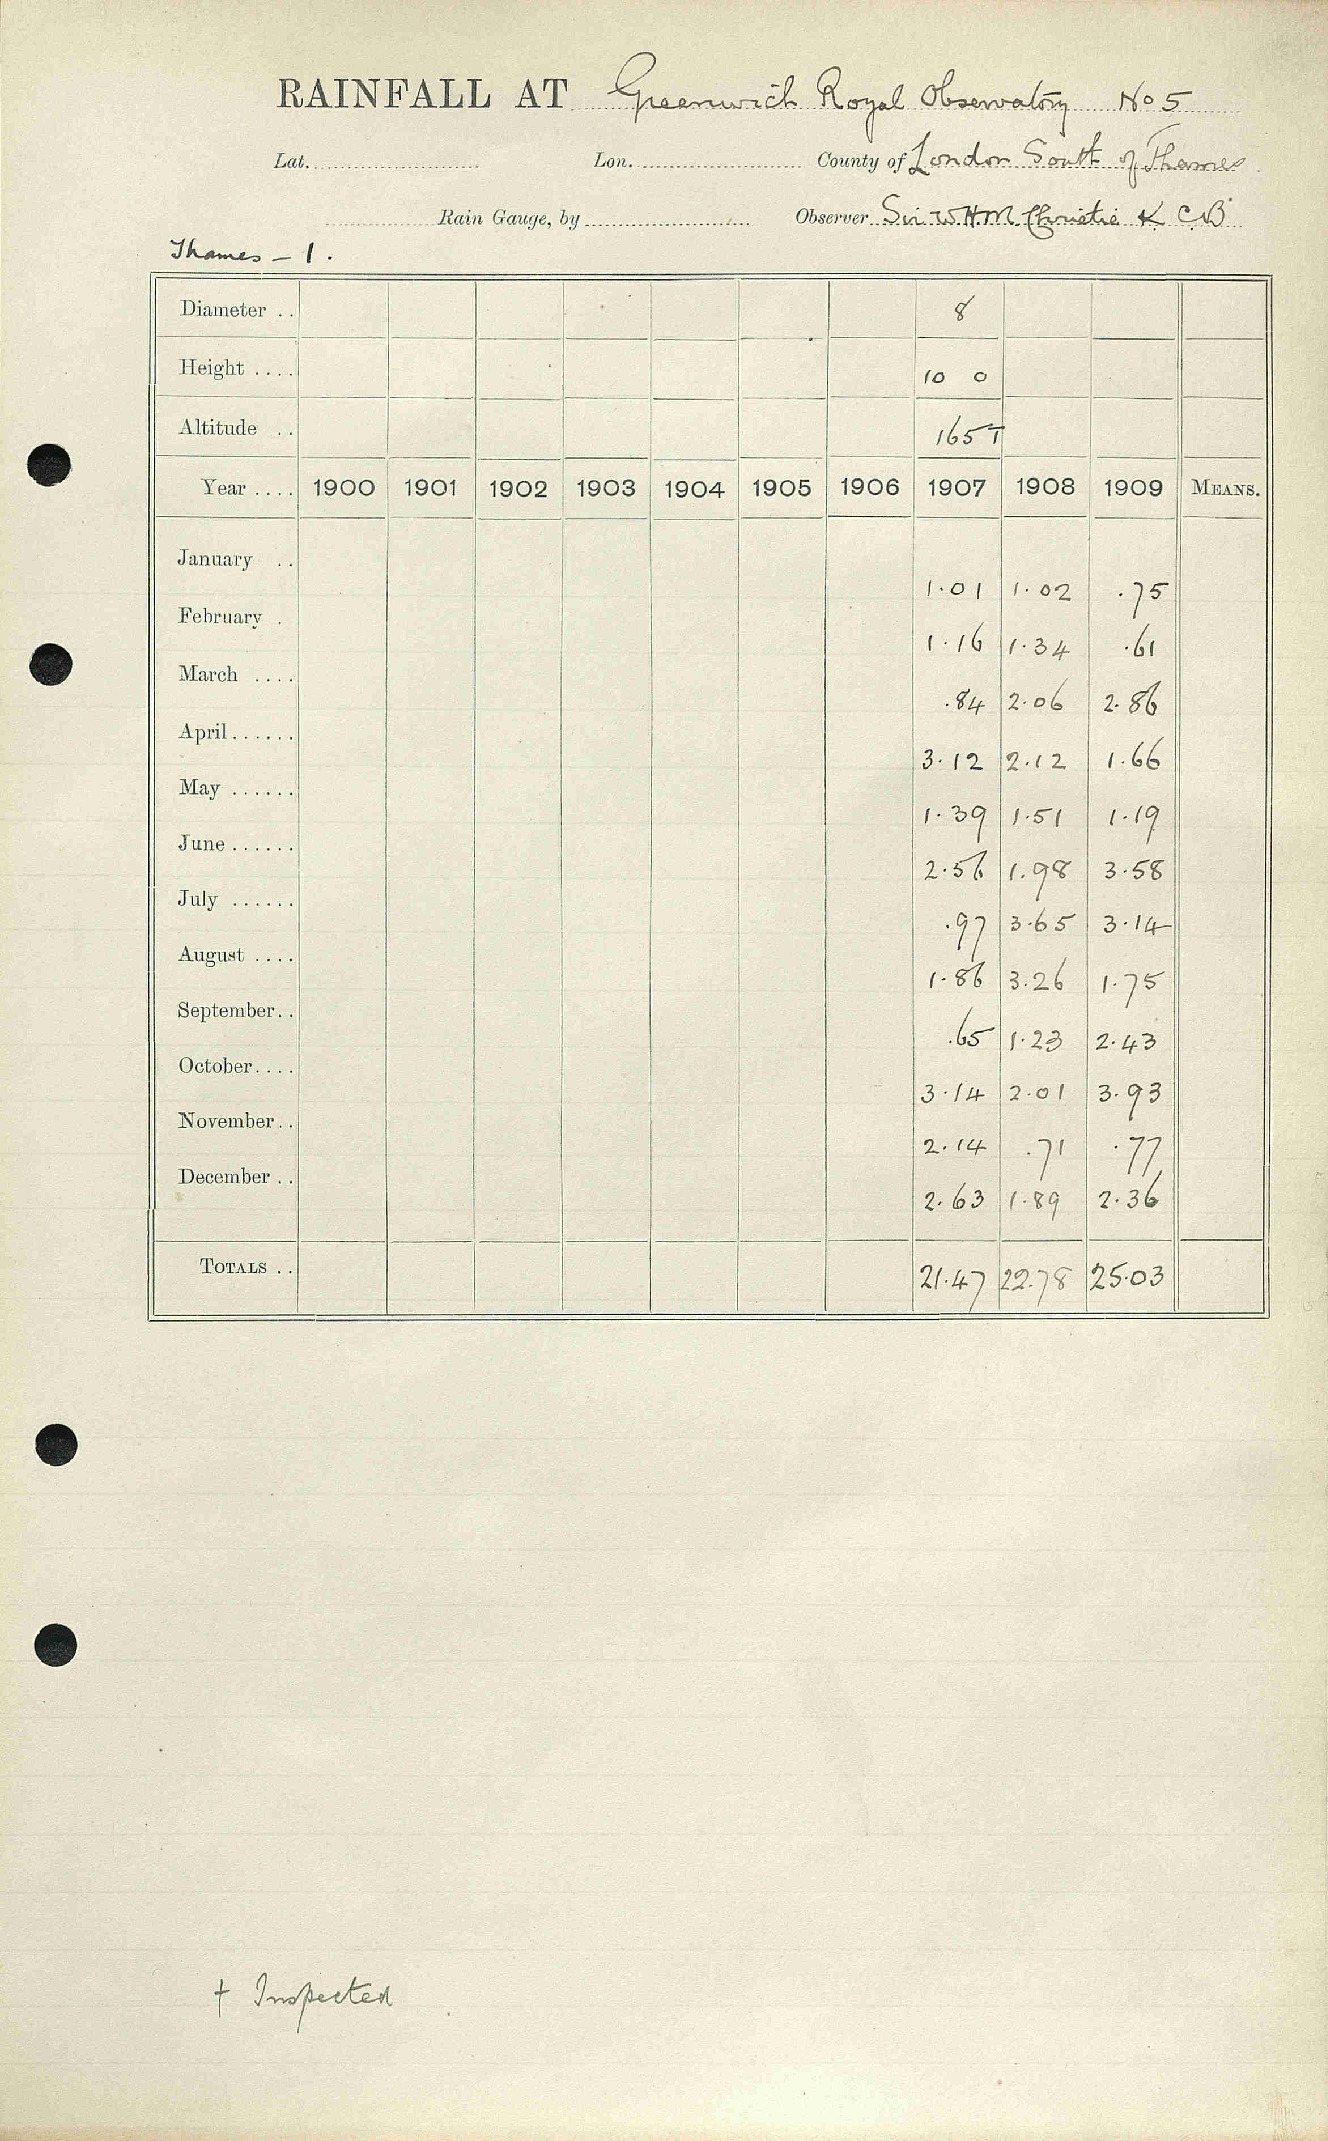 RAINFALL AT Greenwich Royal Observatory No 5
Lat. Lon. County of London South of Thames
Rain Gauge, by Observer Sir W.H.M. Christie K C B
Thames - 1.
Diameter .. 8
Height .... 10 0
Altitude .. 165 T
Year .... 1900 1901 1902 1903 1904 1905 1906 1907 1908 1909 MEANS.
January .. 1.01 1.02 .75
February . 1.16 1.34 .61
March .... .84 2.06 2.86
April...... 3.12 2.12 1.66
May ...... 1.39 1.51 1.19
June ...... 2.56 1.98 3.58
July ...... .97 3.65 3.14
August .... 1.86 3.26 1.75
September.. .65 1.23 2.43
October.... 3.14 2.01 3.93
November.. 2.14 .71 .77
December .. 2.63 1.89 2.36
TOTALS .. 21.47 22.78 25.03
† Inspected